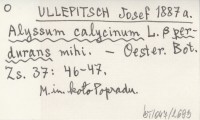 O ULLEPITSCH Josef 1887a.
Alyssum calycinum L. β per-
durans mihi. — Oester. Bot.
Zs. 37: 46-47.
M.in. koło Popradu.